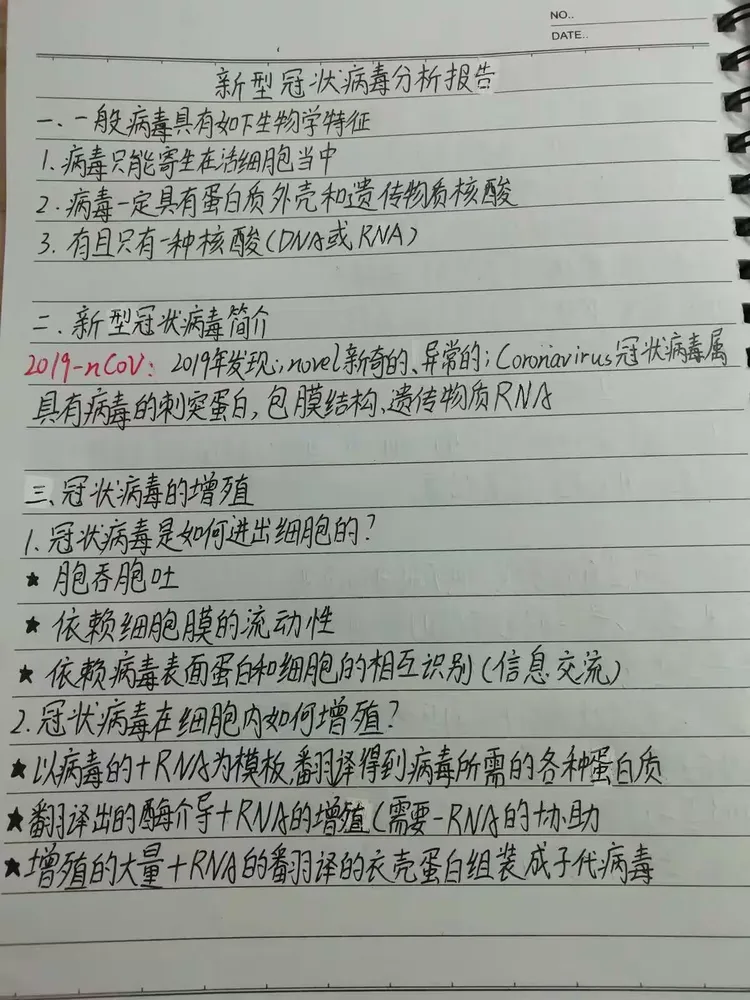 NO..
DATE..
新型冠状病毒分析报告
一、一般病毒具有如下生物学特征
1.病毒只能寄生在活细胞当中
2.病毒一定具有蛋白质外壳和遗传物质核酸
3.有且只有一种核酸(DNA或RNA)
二.新型冠状病毒简介
2019-nCoV: 2019年发现;novel新奇的、异常的;Coronavirus冠状病毒属
具有病毒的刺突蛋白,包膜结构、遗传物质RNA
三、冠状病毒的增殖
1.冠状病毒是如何进出细胞的?
★ 胞吞胞吐
★ 依赖细胞膜的流动性
★ 依赖病毒表面蛋白和细胞的相互识别(信息交流)
2.冠状病毒在细胞内如何增殖?
★以病毒的+RNA为模板,翻译得到病毒所需的各种蛋白质
★翻译出的酶介导+RNA的增殖(需要-RNA的协助
★增殖的大量+RNA的翻译的衣壳蛋白组装成子代病毒